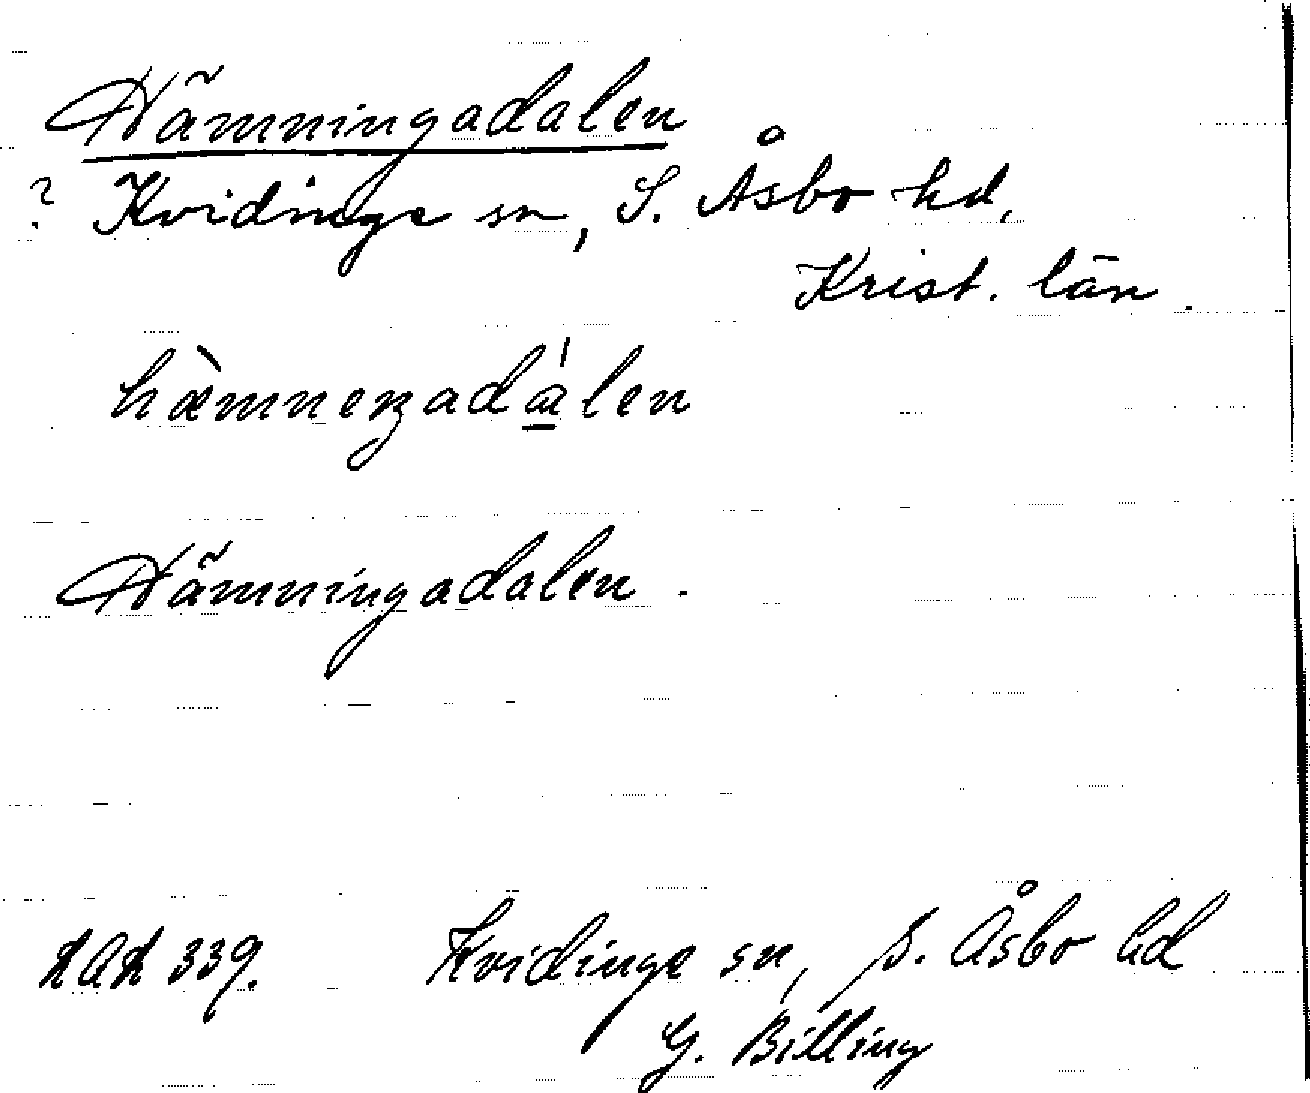 Hämningadalen
? Kvidinge sn, S. Åsbo hd,
Krist. län.
hæ̀mneŋadá̱len
Hämningadalen.
339. Kvidinge sn, s. Åsbo hd
G. Billing